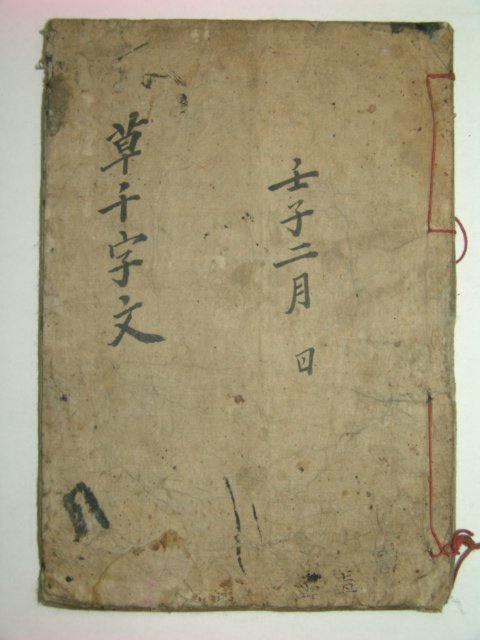 壬子二月 日
草千字文